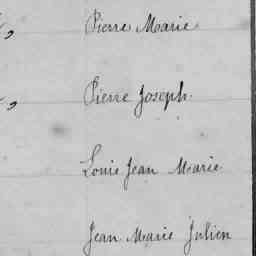 Pierre Marie
Pierre Joseph.
Louis Jean Marie
Jean Marie Julien